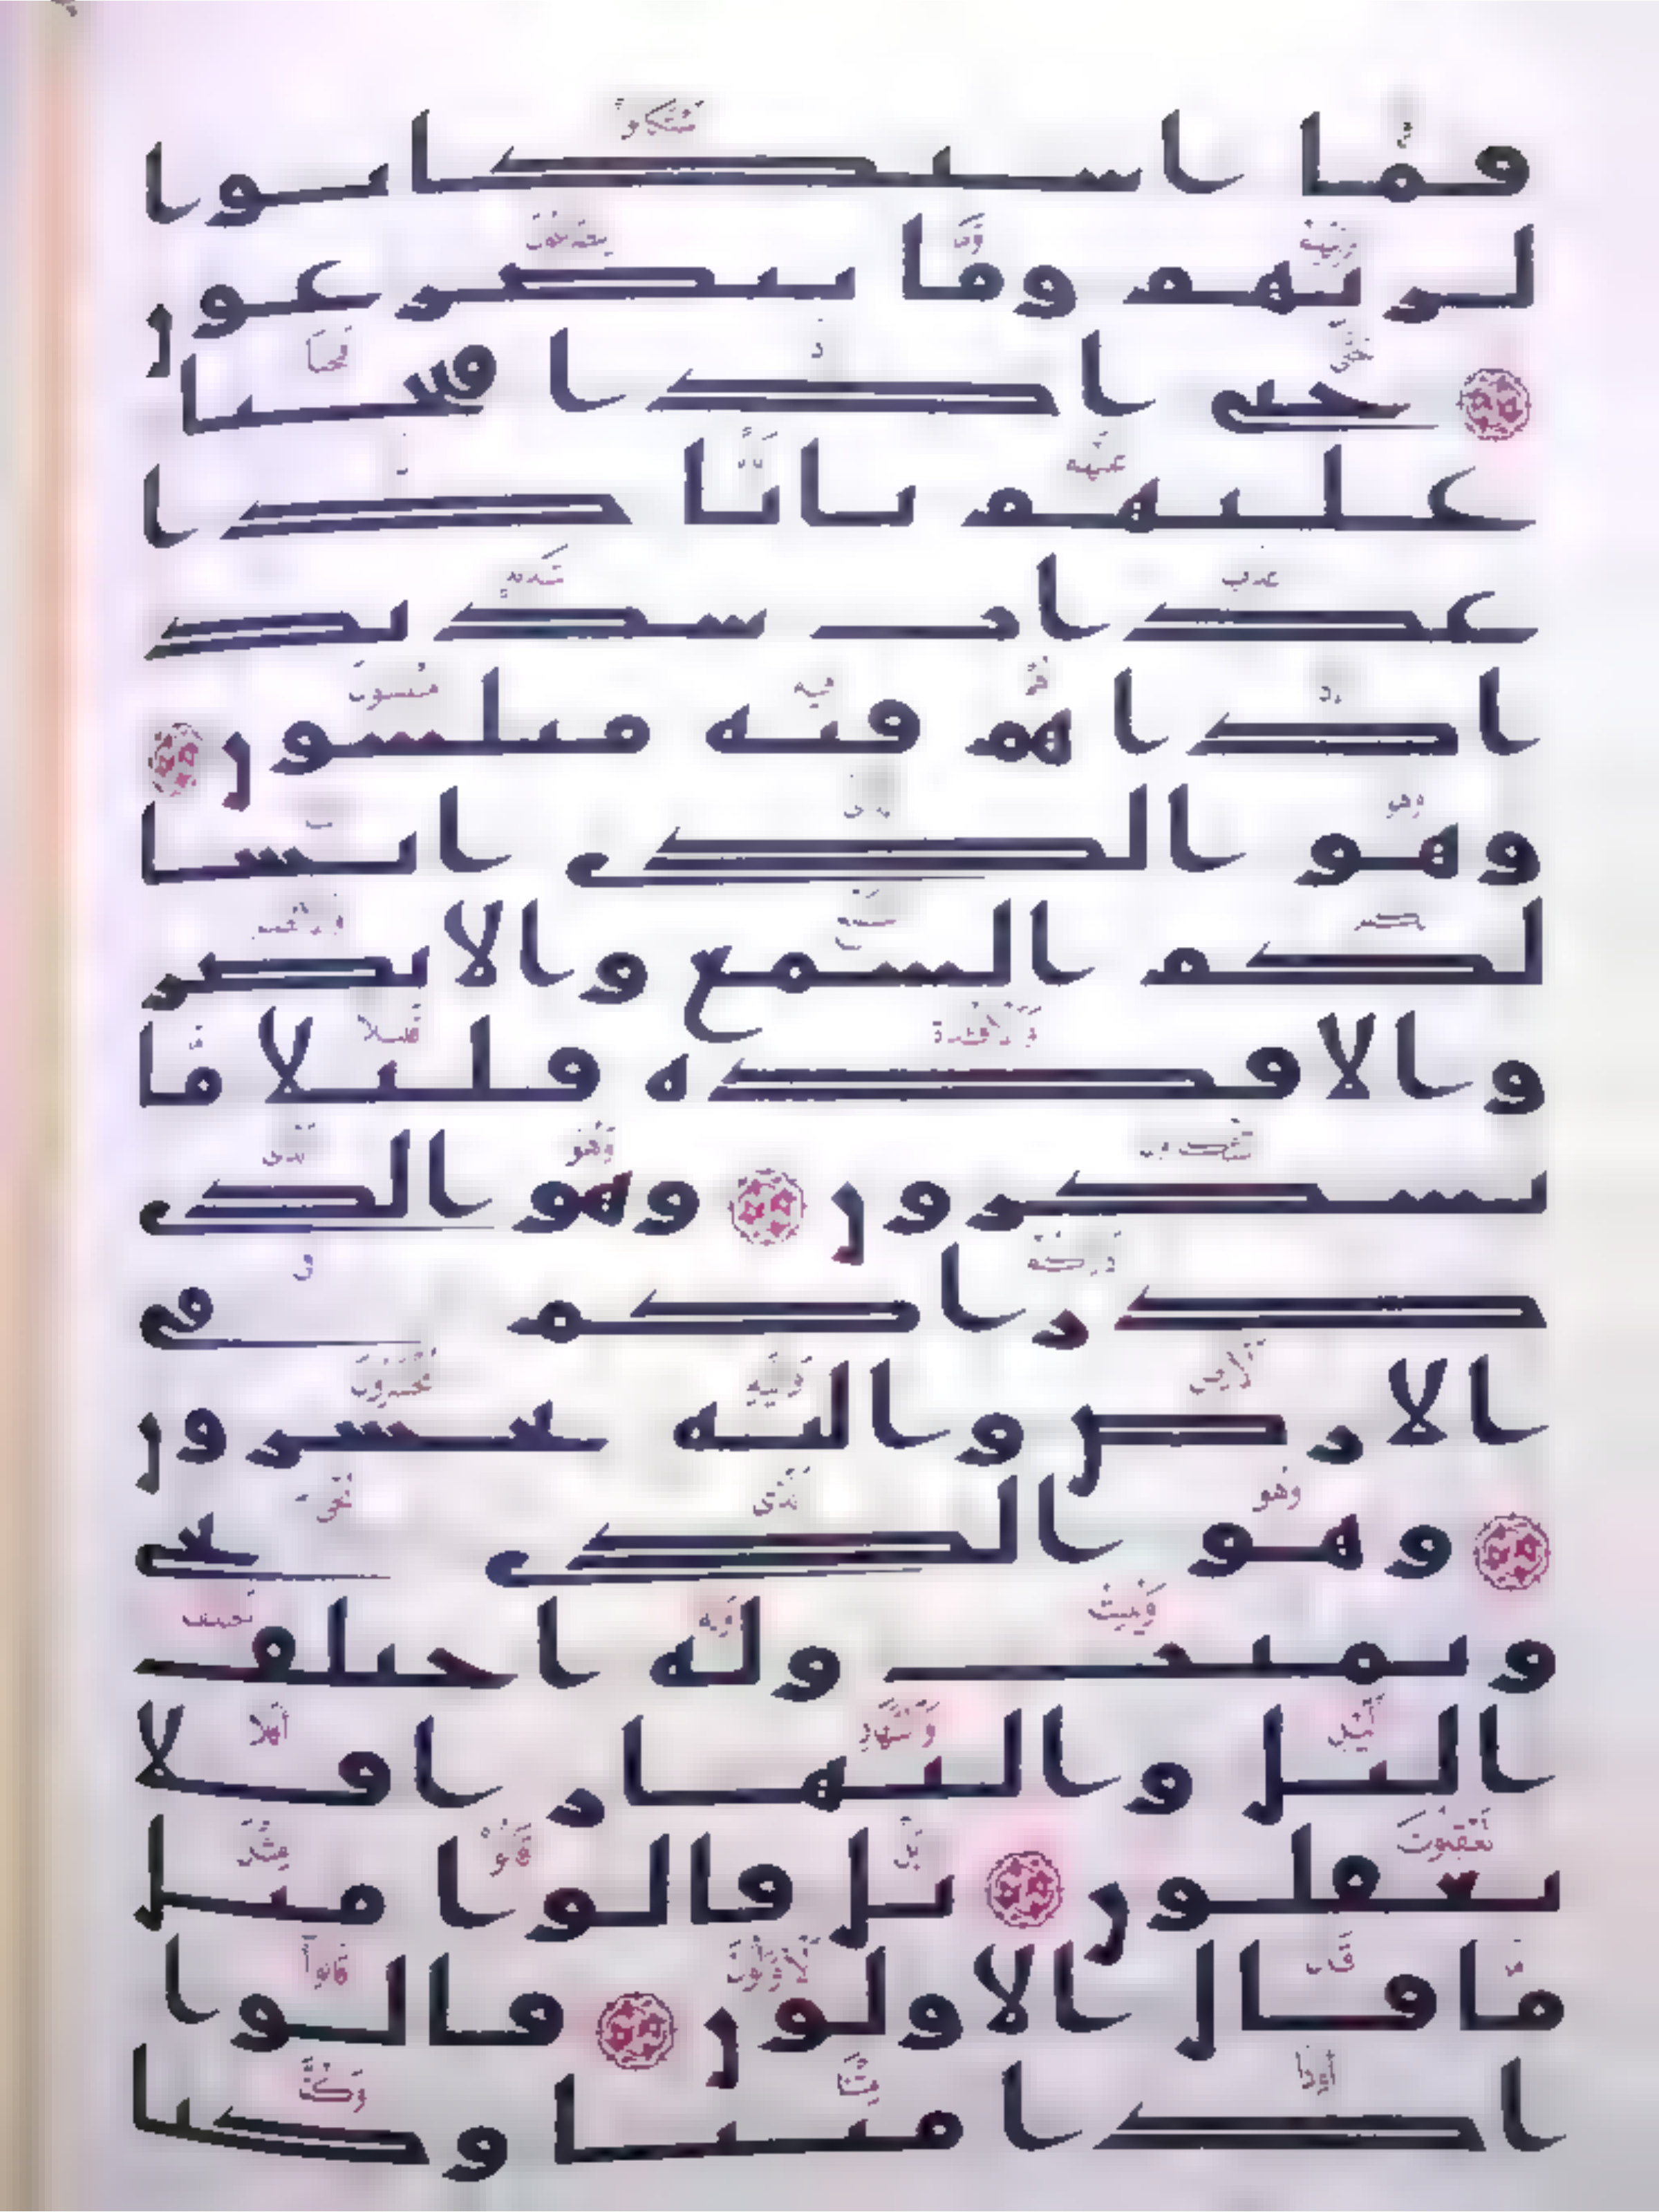 فما استكانوا
لربهم وما يتضرعون
حتى اذا فتحنا
عليهم بابا ذا
عذاب شديد
اذا هم فيه مبلسون
وهو الذي انشا
لكم السمع والابصر
والافده قليلا ما
تشكرون وهو الذي
ذراكم في
الارض واليه تحشرون
وهو الذي يحي
ويميت وله اختلف
اليل والنهار افلا
تعقلون بل قالوا مثل
ما قال الاولون قالوا
اذا متنا وكنا